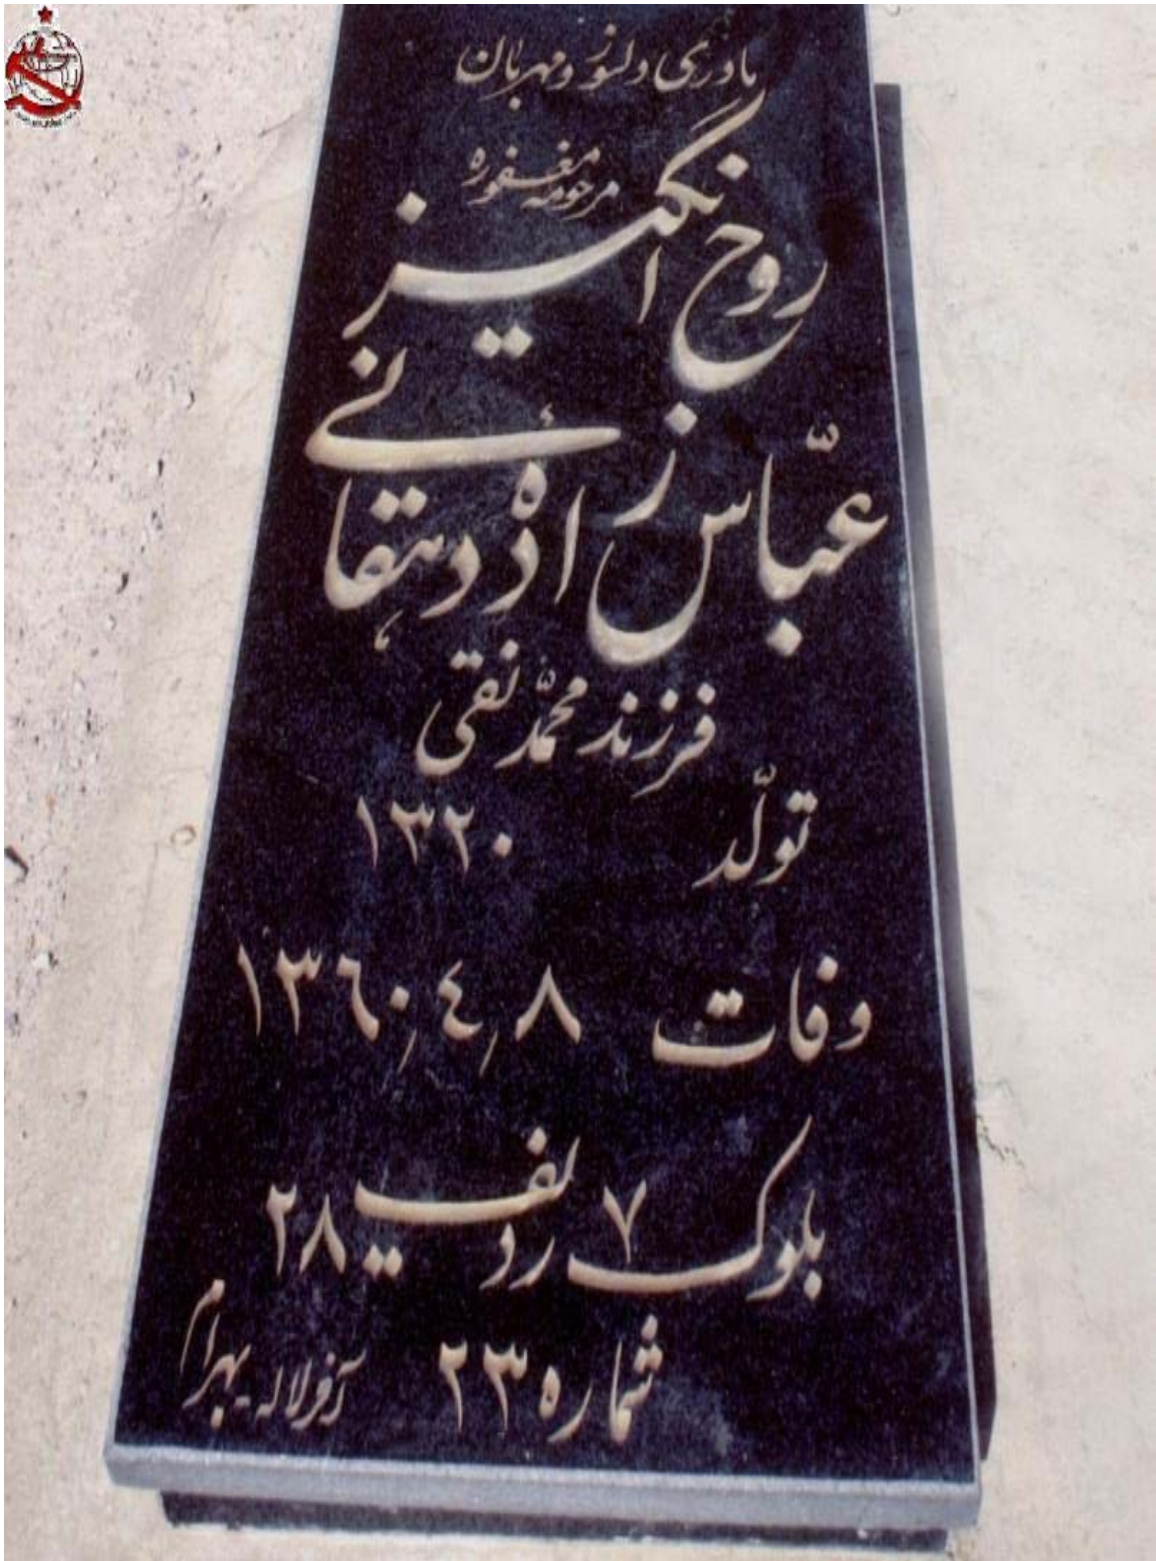 مادری دلسوز و مهربان
مرحومه مغفوره
روح انگیز
عبّاس زادهٔ دهقانی
فرزند محمّد نقی
تولّد ۱۳۲۰
وفات ۸ ر ٤ ر ۱۳٦۰
بلوک ۷ ردیف ۲۸
شماره ۲۳